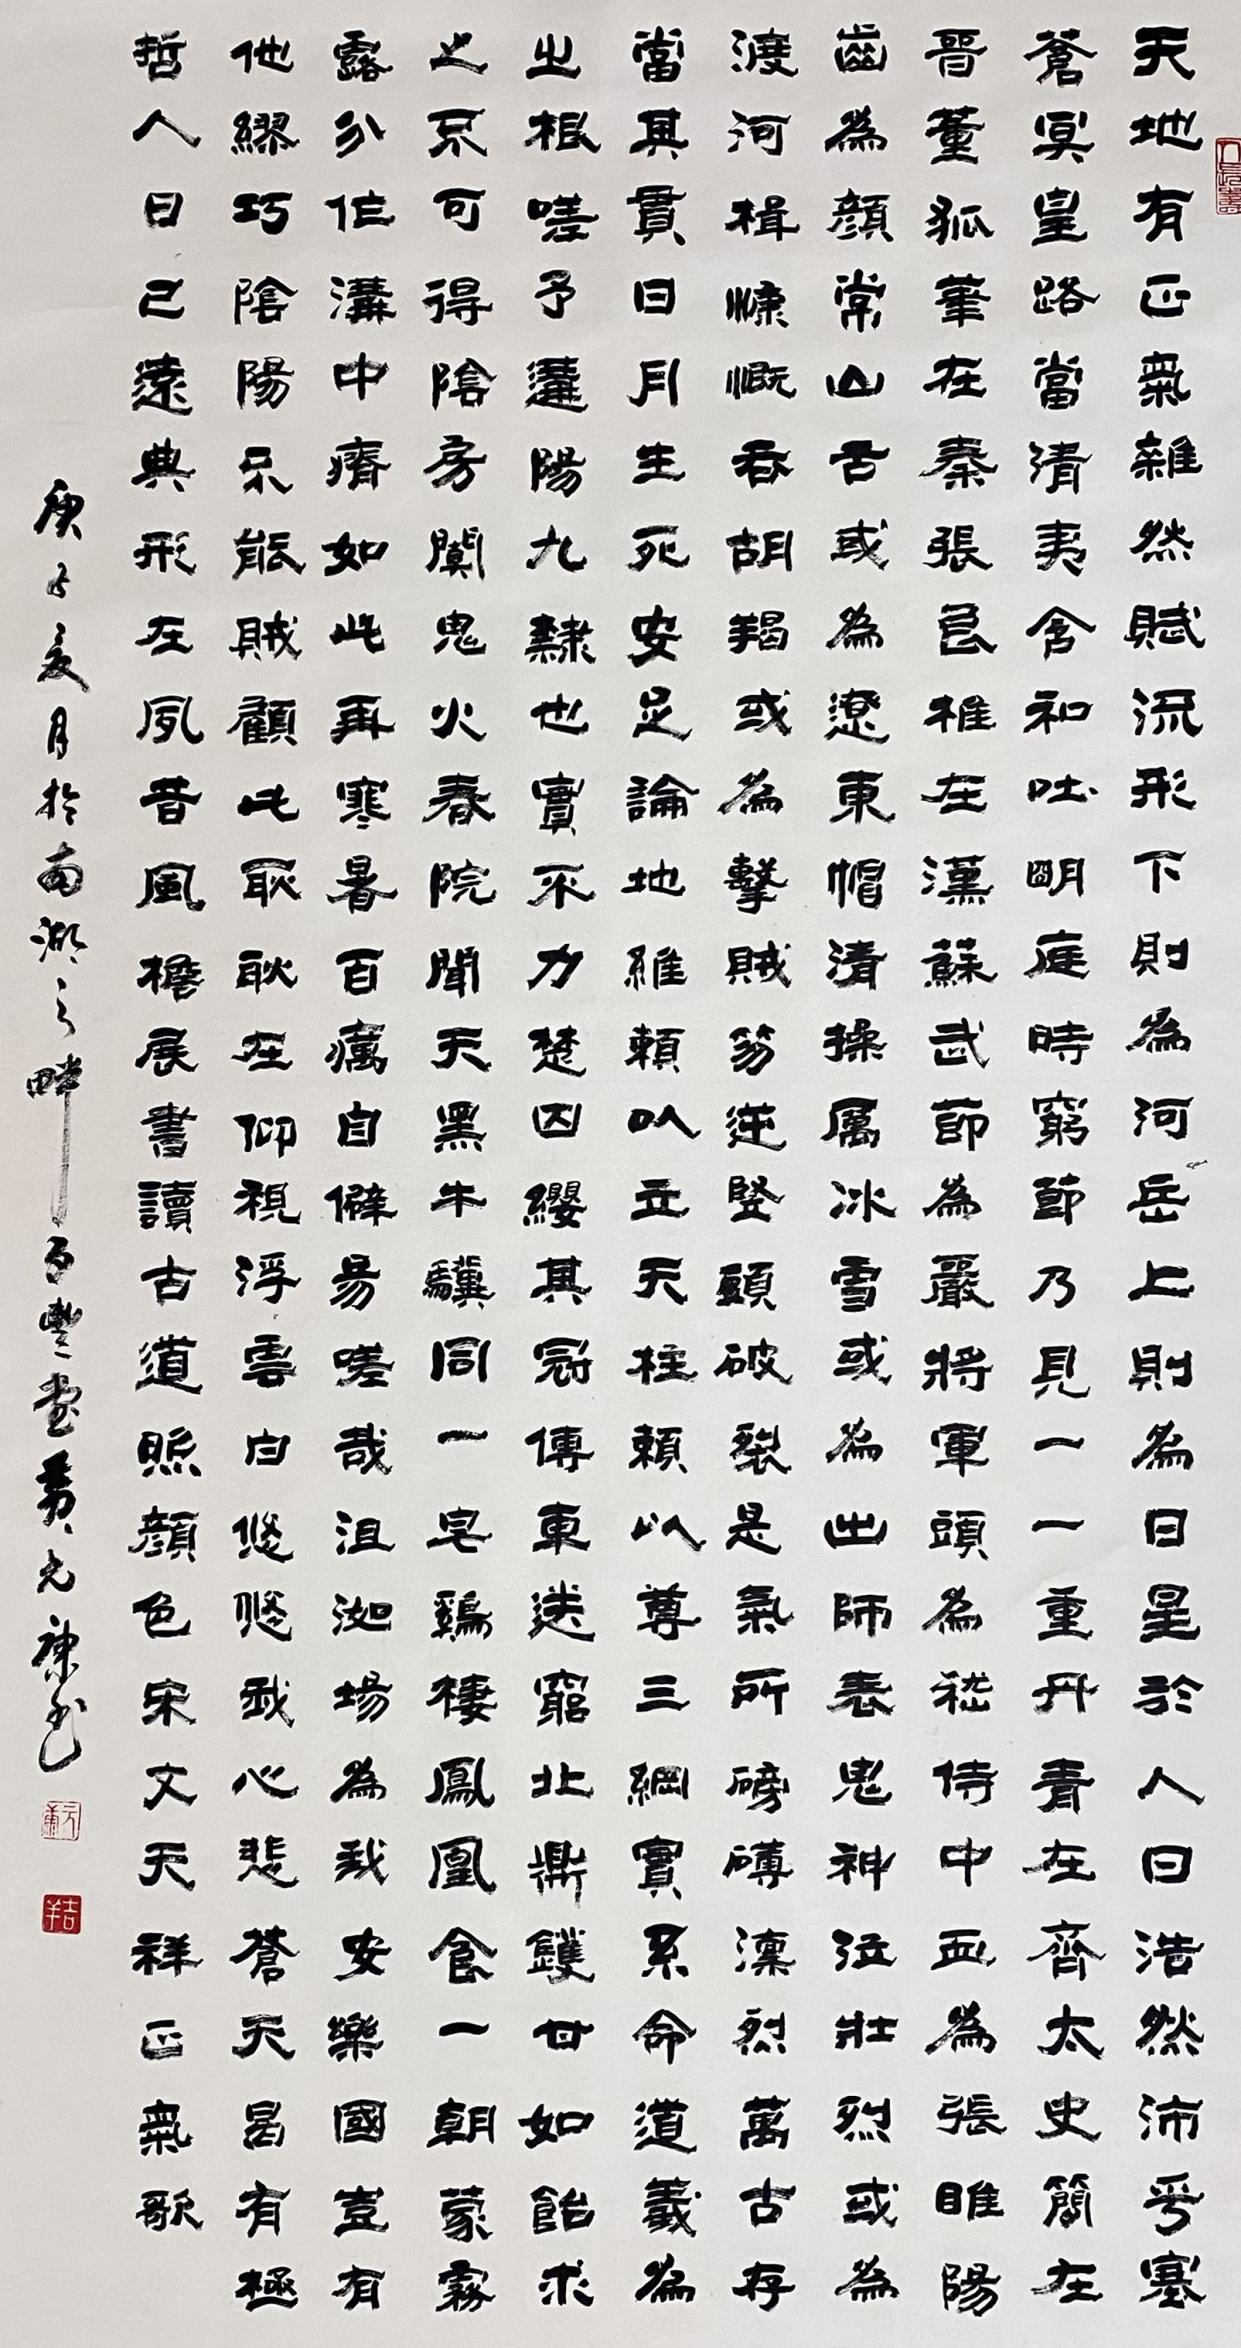 天地有正氣雜然賦流形下則為河岳上則為日星於人曰浩然沛乎塞
蒼冥皇路當清夷含和吐明庭時窮節乃見一一重丹青在齊太史簡在
晉董狐筆在秦張良椎在漢蘇武節為嚴將軍頭為嵇侍中血為張睢陽
齒為顏常山舌或為遼東帽清操厲冰雪或為出師表鬼神泣壯烈或為
渡河楫慷慨吞胡羯或為擊賊笏逆豎頭破裂是氣所磅礴凜烈萬古存
當其貫日月生死安足論地維賴以立天柱賴以尊三綱實系命道義為
之根嗟予遘陽九隸也實不力楚囚纓其冠傳車送窮北鼎鑊甘如飴求
之不可得陰房闃鬼火春院聞天黑牛驥同一皂鷄棲鳳凰食一朝蒙霧
露分作溝中瘠如此再寒暑百癘自僻易嗟哉沮洳場為我安樂國豈有
他繆巧陰陽不能賊顧此耿耿在仰視浮雲白悠悠我心悲蒼天曷有極
哲人日已遠典形在夙昔風檐展書讀古道照顏色宋文天祥正氣歌
庚子夏月於南湖之畔百豐堂黃元康書
元康
吉羊